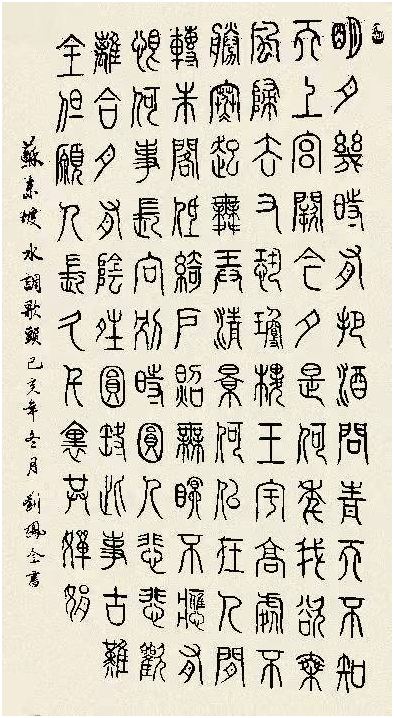 明月幾時有把酒問青天不知
天上宮闕今夕是何年我欲乘
風歸去又恐瓊樓玉宇高處不
勝寒起舞弄清景何似在人間
轉朱閣低綺戶照無眠不應有
恨何事長向別時圓人悲悲歡
離合月有陰晴圓缺此事古難
全但願人長久千裏共嬋娟
蘇東坡水調歌頭己亥年冬月劉全書